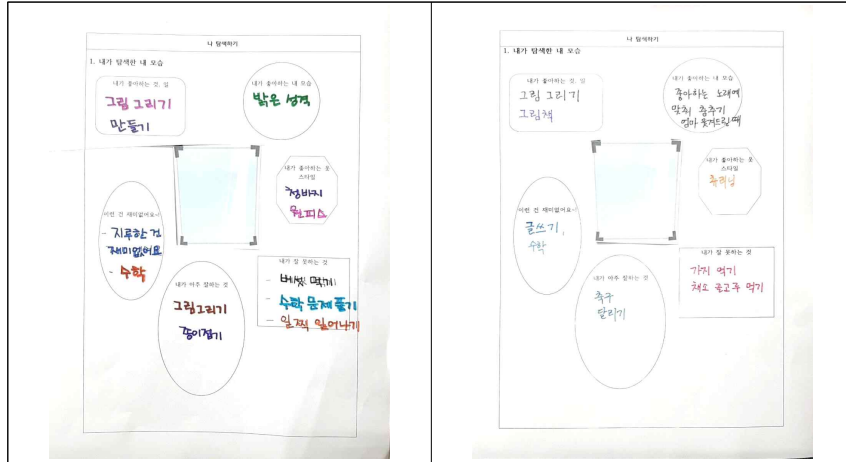 나 탐색하기
1. 내가 탐색한 내 모습
내가 좋아하는 것, 일
그림 그리기
만들기
내가 좋아하는 내 모습
밝은 성격
내가 좋아하는 옷
스타일
청바지
원피스
이런 건 재미없어요~
- 지루한 건
재미없어요
- 수학
내가 아주 잘하는 것
그림그리기
종이접기
내가 잘 못하는 것
- 버섯 먹기
- 수학 문제 풀기
- 일찍 일어나기
나 탐색하기
1. 내가 탐색한 내 모습
내가 좋아하는 것, 일
그림 그리기
그림책
내가 좋아하는 내 모습
좋아하는 노래에
맞춰 춤추기
엄마 웃겨드릴 때
내가 좋아하는 옷
스타일
츄리닝
이런 건 재미없어요~
글쓰기,
수학
내가 아주 잘하는 것
축구
달리기
내가 잘 못하는 것
가지 먹기
채소 골고루 먹기